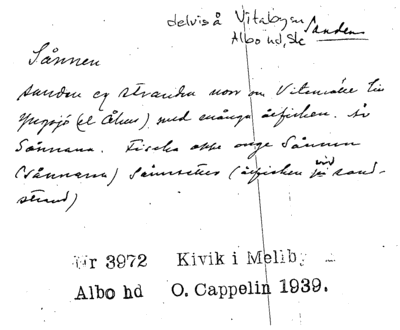 delvis å Vitabysanden
Albo hd, Sk
Sånnen
sanden og stranden norr om Vitemölle till
Yngsjö (el Åhus) med många ålfisken. är
Sånnana. Fiska oppe ånge Sånnen
(Sånnana) Sånnsätter (ålfisken vid sand-
strand)
Ur 3972 Kivik i Mellby
Albo hd O. Cappelin 1939.